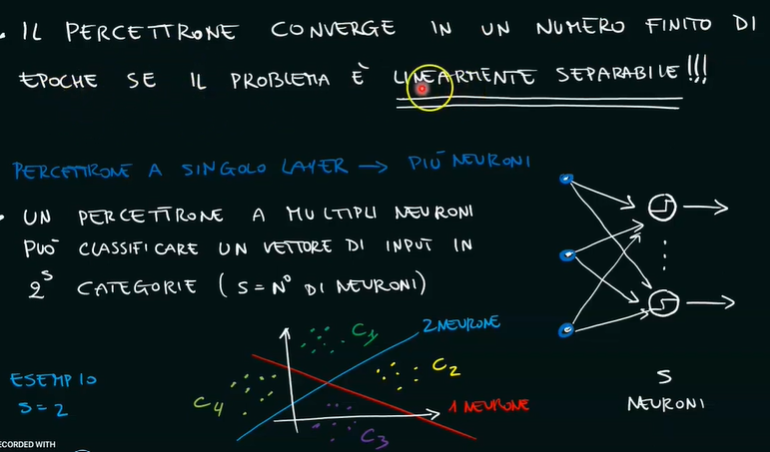 • IL PERCETTRONE CONVERGE IN UN NUMERO FINITO DI
EPOCHE SE IL PROBLEMA È LINEARMENTE SEPARABILE!!!
PERCETTRONE A SINGOLO LAYER → PIÙ NEURONI
• UN PERCETTRONE A MULTIPLI NEURONI
PUÒ CLASSIFICARE UN VETTORE DI INPUT IN
2^S CATEGORIE (S = N° DI NEURONI)
C1
2 NEURONE
C2
ESEMPIO
S = 2
C4
1 NEURONE
C3
S
NEURONI
ECORDED WITH